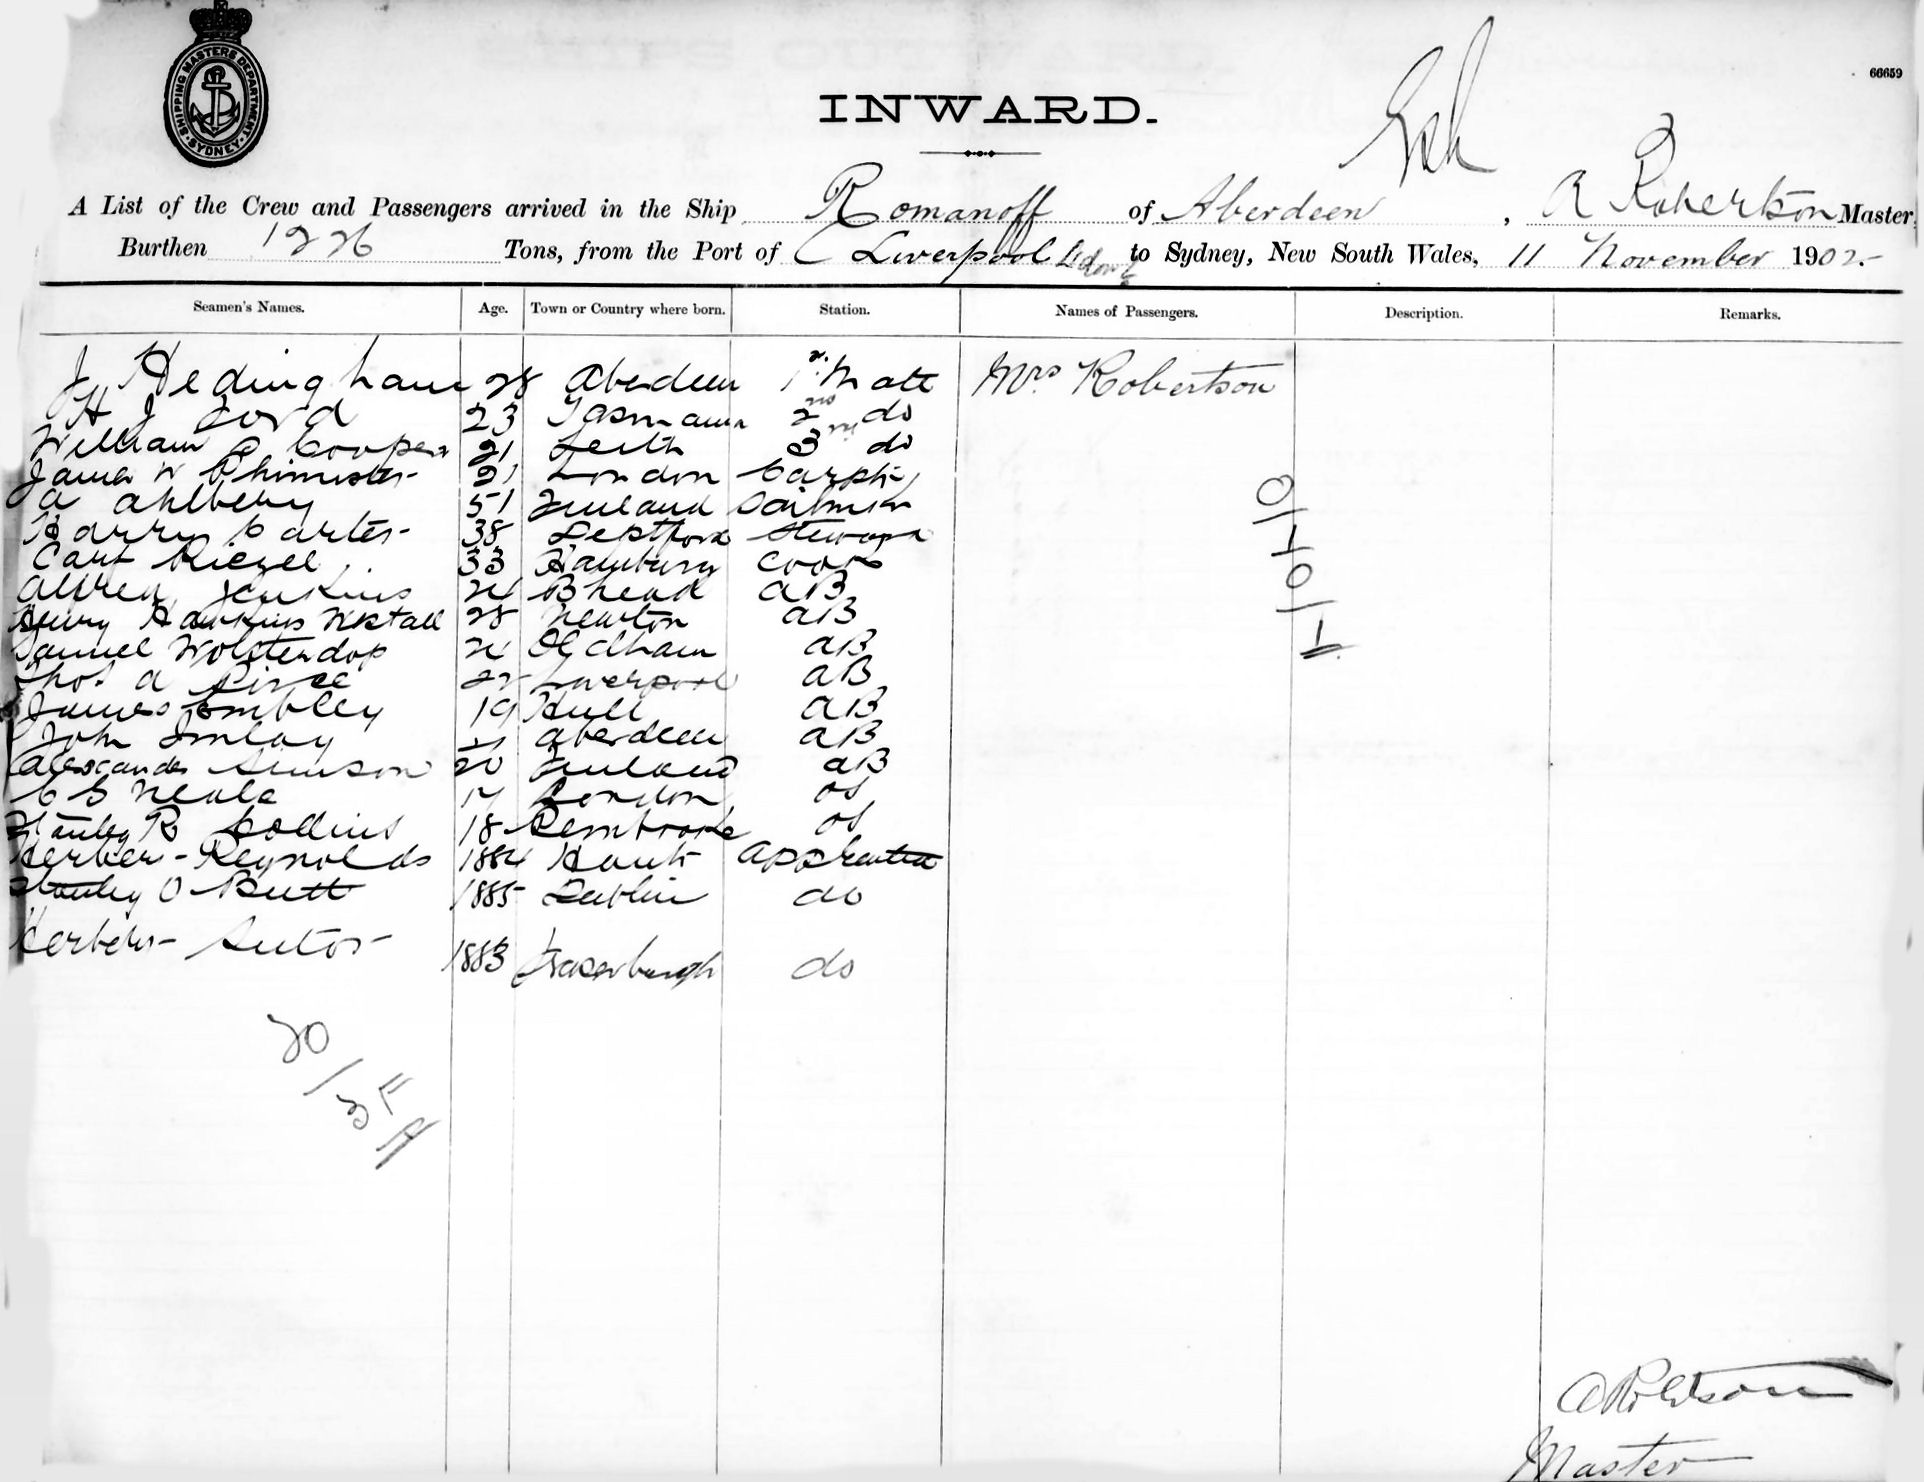 SHIPPING MASTERS DEPARTMENT SYDNEY
66659
INWARD.
A List of the Crew and Passengers arrived in the Ship Romanoff of Aberdeen, A Robertson Master,
Burthen 1226 Tons, from the Port of Liverpool to Sydney, New South Wales, 11 November 1902
Seamen's Names. Age. Town or Country where born. Station. Names of Passengers. Description. Remarks.
J Hedingham 28 Aberdeen 1st Mate Mrs Robertson
H J Ford 23 Tasmania 2nd do
William Cooper 21 Leith 3rd do
James W Chimister 21 London Carptr
A Ahlberg 51 Finland Sailmkr
Harry Carter 38 Deptford Steward
Carl 33 Hamburg Cook
Alfred Jenkins 24 B head AB
Henry Hawkins Westall 28 Newton AB
Samuel Wolstendop Oldham AB
Thos A Liverpool AB
James Embley 19 Hull AB
John Imlay 21 Aberdeen AB
Alexander Simson 20 Finland AB
C S Neale 17 London OS
Stanley R Collins 18 Pembroke OS
Herbert Reynolds 1884 Hants Apprentice
Stanley O Butt 1885 Dublin do
Herbert Sutor 1883 Fraserburgh do
0/1/0/1
20/
A Robertson
Master